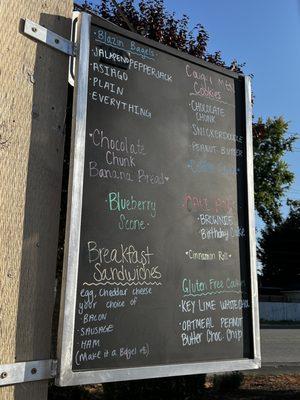 Blazin Bagels
· JALAPENO PEPPERJACK
· ASIAGO
· PLAIN
· EVERYTHING
· Chocolate
Chunk
Banana Bread ·
· Blueberry
Scone ·
Breakfast
Sandwiches
egg, cheddar cheese
your choice of
· BACON
· SAUSAGE
· HAM
(Make it a Bagel +1)
Cookies
· CHOCOLATE
CHUNK
· SNICKERDOODLE
· PEANUT BUTTER
CAKE POPS
· BROWNIE
· Birthday Cake
· Cinnamon Roll ·
Gluten Free
· KEY LIME WHITE
· OATMEAL PEANUT
Butter Choc Chunk